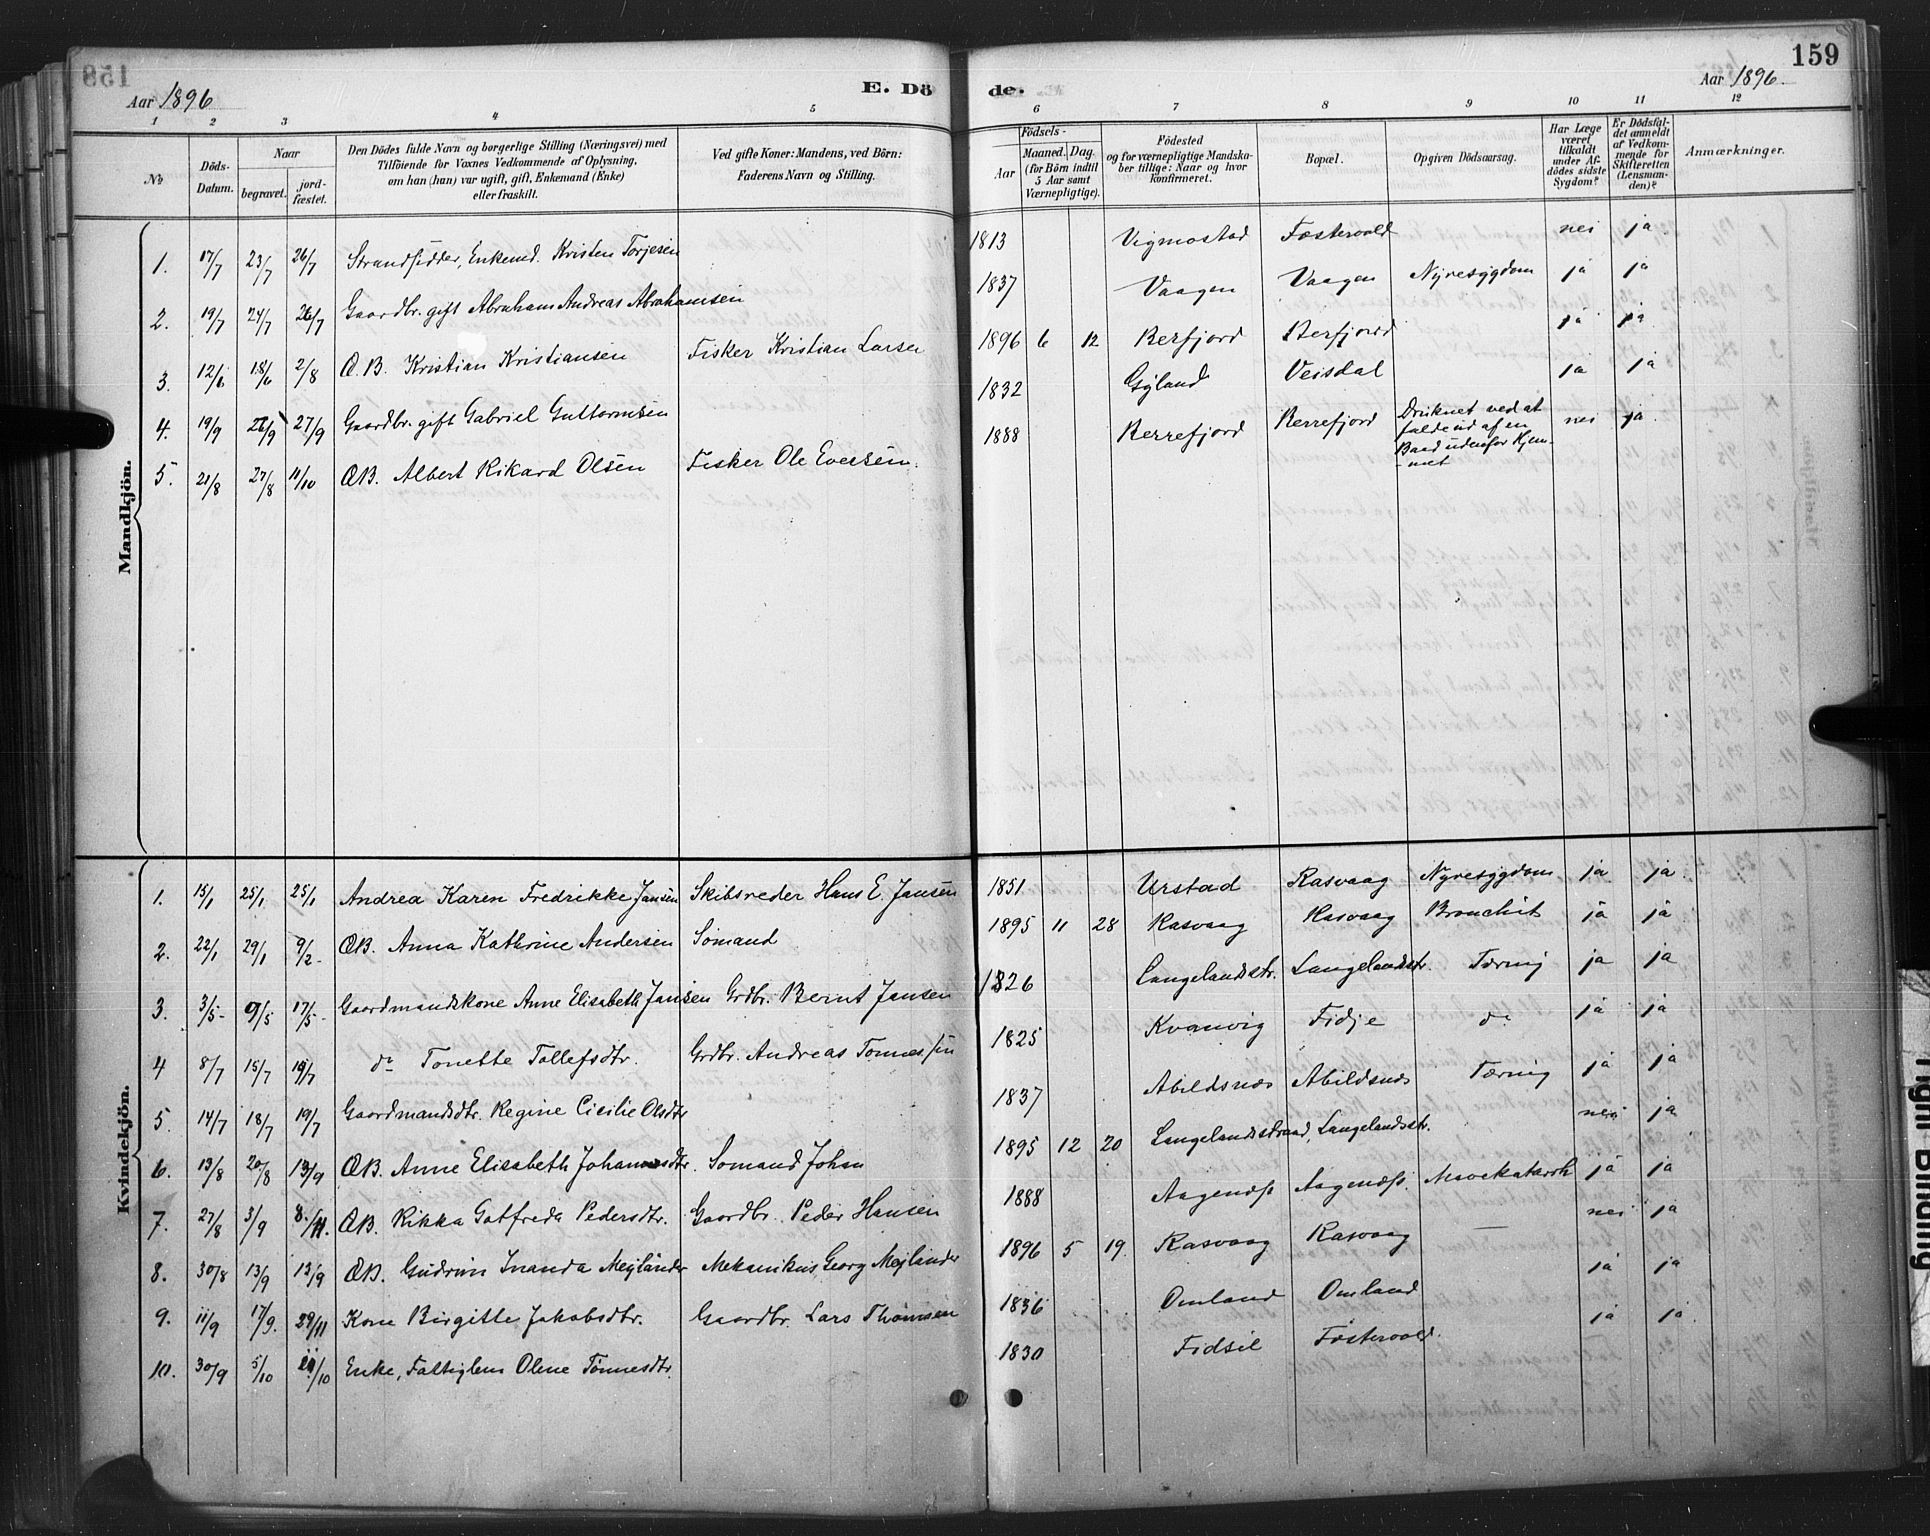 159
Aar 1896
E. Döde.
Aar 1896.
1 2 3 4 5 6 7 8 9 10 11 12
No
Döds-Datum.
Naar
begravet.
jord-fæstet.
Den Dödes fulde Navn og borgerlige Stilling (Næringsvei) med
Tilföiende for Voxnes Vedkommende af Oplysning,
om han (hun) var ugift, gift, Enkemand (Enke)
eller fraskilt.
Ved gifte Koner: Mandens, ved Börn:
Faderens Navn og Stilling.
Födsels-
Aar
Maaned. Dag.
(for Börn indtil
5 Aar samt
Værnepligtige).
Födested
og for værnepligtige Mandska-
ber tillige: Naar og hvor
konfirmeret.
Bopæl.
Opgiven Dödsaarsag.
Har Læge
været
tilkaldt
under Af-
dödes sidste
Sygdom?
Er Dödsfal-
det anmeldt
af Vedkom-
mende for
Skifteretten
(Lensman-
den)?
Anmærkninger.
Mandkjön.
1. 17/7 23/7 26/7 Strandsidder, Enkemd. Kristen Torjesen 1813 Vigmostad Fæstervold nei ja
2. 19/7 24/7 26/7 Gaardbr. gift Abraham Andreas Abrahamsen 1837 Vaagen Vaagen Nyresygdom ja ja
3. 12/6 18/6 2/8 Æ.B. Kristian Kristiansen Fisker Kristian Larsen 1896 6 12 Berfjord Berfjord ja ja
4. 19/9 26/9 27/9 Gaardbr. gift Gabriel Guttormsen 1832 Gyland Veisdal ja ja
5. 21/8 27/8 11/10 ÆB. Albert Rikard Olsen Fisker Ole Evensen. 1888 Berrefjord Berrefjord Druknet ved at
falde ud af en
Baad udenfor Hjem-
-met nei ja
Kvindekjön.
1. 15/1 25/1 25/1 Andrea Karen Fredrikke Jansen Skibsreder Hans E. Jansen 1851 Urstad Rasvaag Nyresygdom ja ja
2. 22/1 29/1 9/2 ÆB. Anna Kathrine Andersen Sömand 1895 11 28 Rasvaag Rasvaag Bronchit ja ja
3. 3/5 9/5 17/5 Gaardmandskone Anne Elisabeth Jansen Grdbr. Bernt Jansen 1826 Langelandsstr. Langelandsstr. Tæring ja ja
4 8/7 15/7 19/7 do Tonette Tollefsdtr. Grdbr. Andreas Tønnessen 1825 Kvanvig Fidje do ja ja
5. 14/7 18/7 19/7 Gaardmandsdtr. Regine Cicilie Olsdtr 1837 Abildsnæs Abildsnæs Tæring ja ja
6. 13/8 20/8 13/9 ÆB. Anne Elisabeth Johannesdtr. Sömand Johan 1895 12 20 Langelandsstrand, Langelandsstr. nei ja
7. 27/8 3/9 8/11. ÆB. Rikka Gotfreda Pedersdtr. Gaardbr. Peder Hansen 1888 Aagenæs Aagenæs. Mavekatarrh ja ja
8. 30/8 13/9 13/9 ÆB. Gudrun Inanda Mejlænder Mekanikus Georg Mejlænder 1896 5 19. Rasvaag Rasvaag — nei ja
9. 11/9 17/9. 29/11 Kone Birgitte Jakobsdtr. Gaardbr. Lars Thomsen 1836 Omland Omland ja ja
10. 30/9 5/10 11/10 Enke, Fattiglem Olene Tönnesdtr. 1830 Fidsel Fæstervold. ja ja